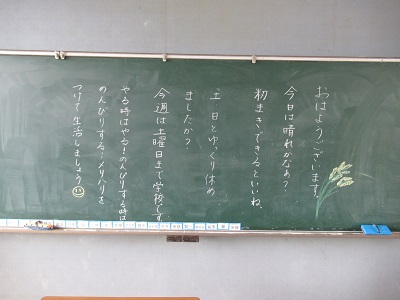 おはようございます。
今日は晴れかなぁ?
籾まきできるといいね。
土日とゆっくり休め
ましたか?
今週は土曜日まで学校です。
やる時はやる!のんびりする時は
のんびりする…メリハリを
つけて生活しましょう